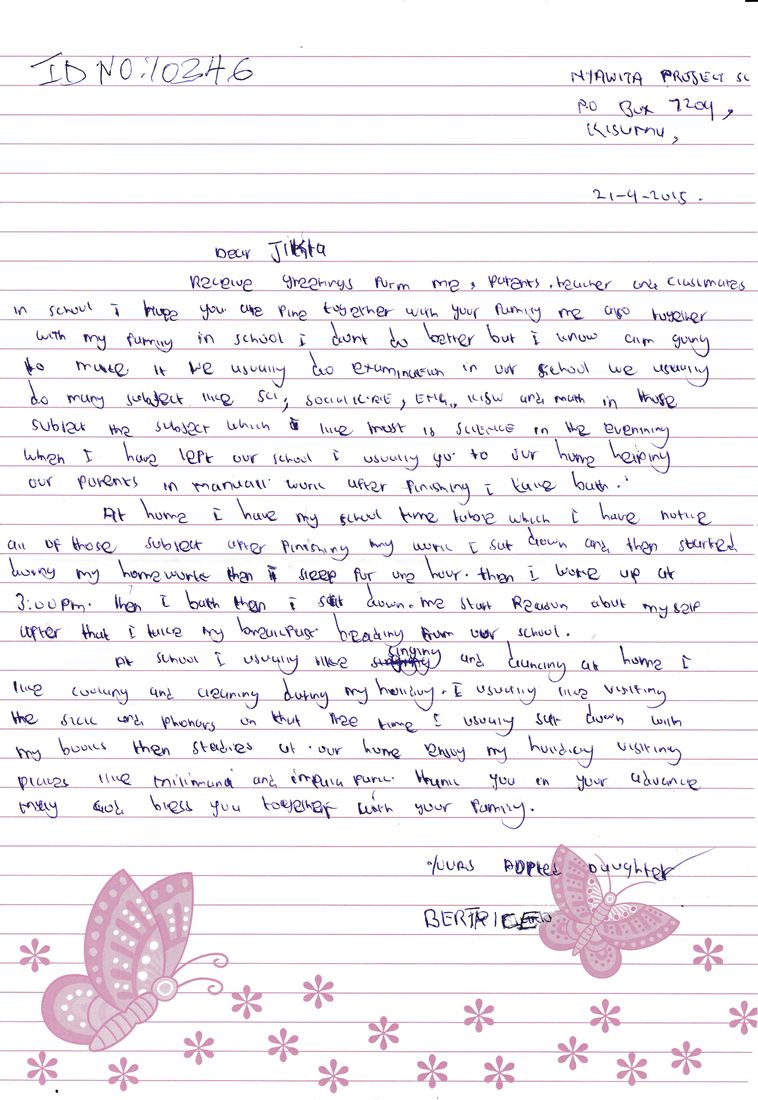 ID NO: 10246
NYAWITA PROJECT SC
P.O Box 7204,
KISUMU,
21-4-2015.
Dear
Receive greetings form me, parents, teacher and classmates
in school i hope you are fine together with your family me also together
with my family in school i dont do better but i know aim going
to make it We usually do examination in our school we usually
do many subject like SCI, SOCIAL/C.R.E, ENG, KISW and math in those
subject the subject which i like most is SCIENCE in the evenning
when I have left our school i usually go to our home helping
our parents in manuall work after finishing i take bath.
At home i have my school time table which i have notice
all of those subject after finishing my work I sat down and then started
doing my homework then i sleep for one hour. then i woke up at
3:00pm. then i bath then i sat down. me start Reason abut my self
after that i take my breakfast heading from our school.
At school I usually like singing and dancing at home I
like cooking and cleaning during my holiday. I usually like visiting
the sick and phonars on that free time I usually sat down with
my books then studies at our home enjoy my holiday visiting
places like milimani and impala park. thank you in your advance
may God bless you together with your family.
YOURS ADPTED Daughter